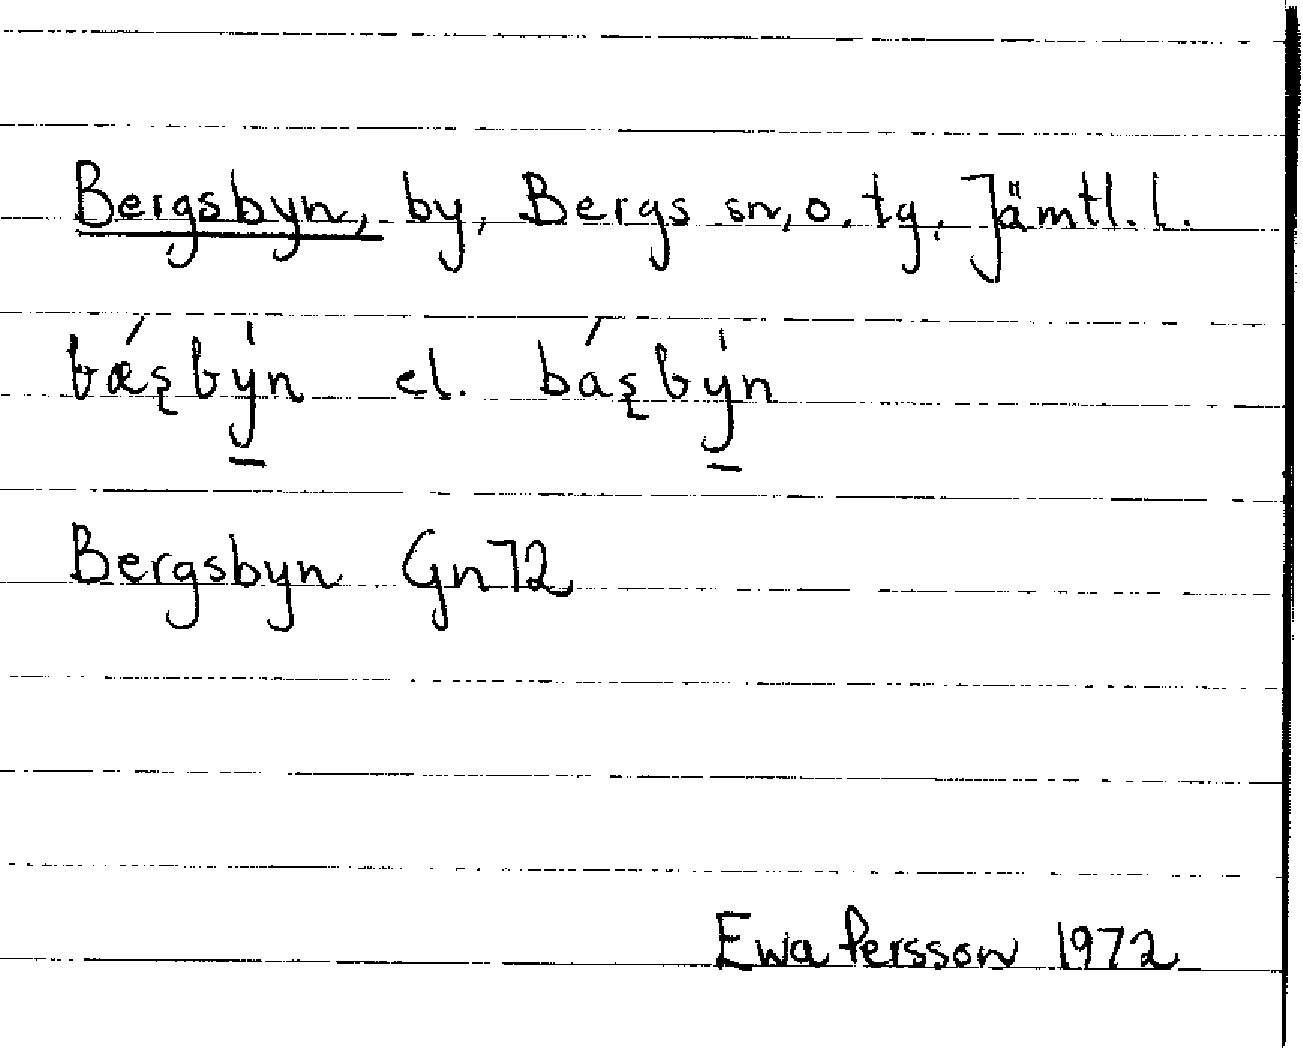 Bergsbyn, by, Bergs sn, o. tg. Jämtl. l.
bǽʂby̠̍n el. báʂby̠̍n
Bergsbyn Gn72
Ewa Persson 1972